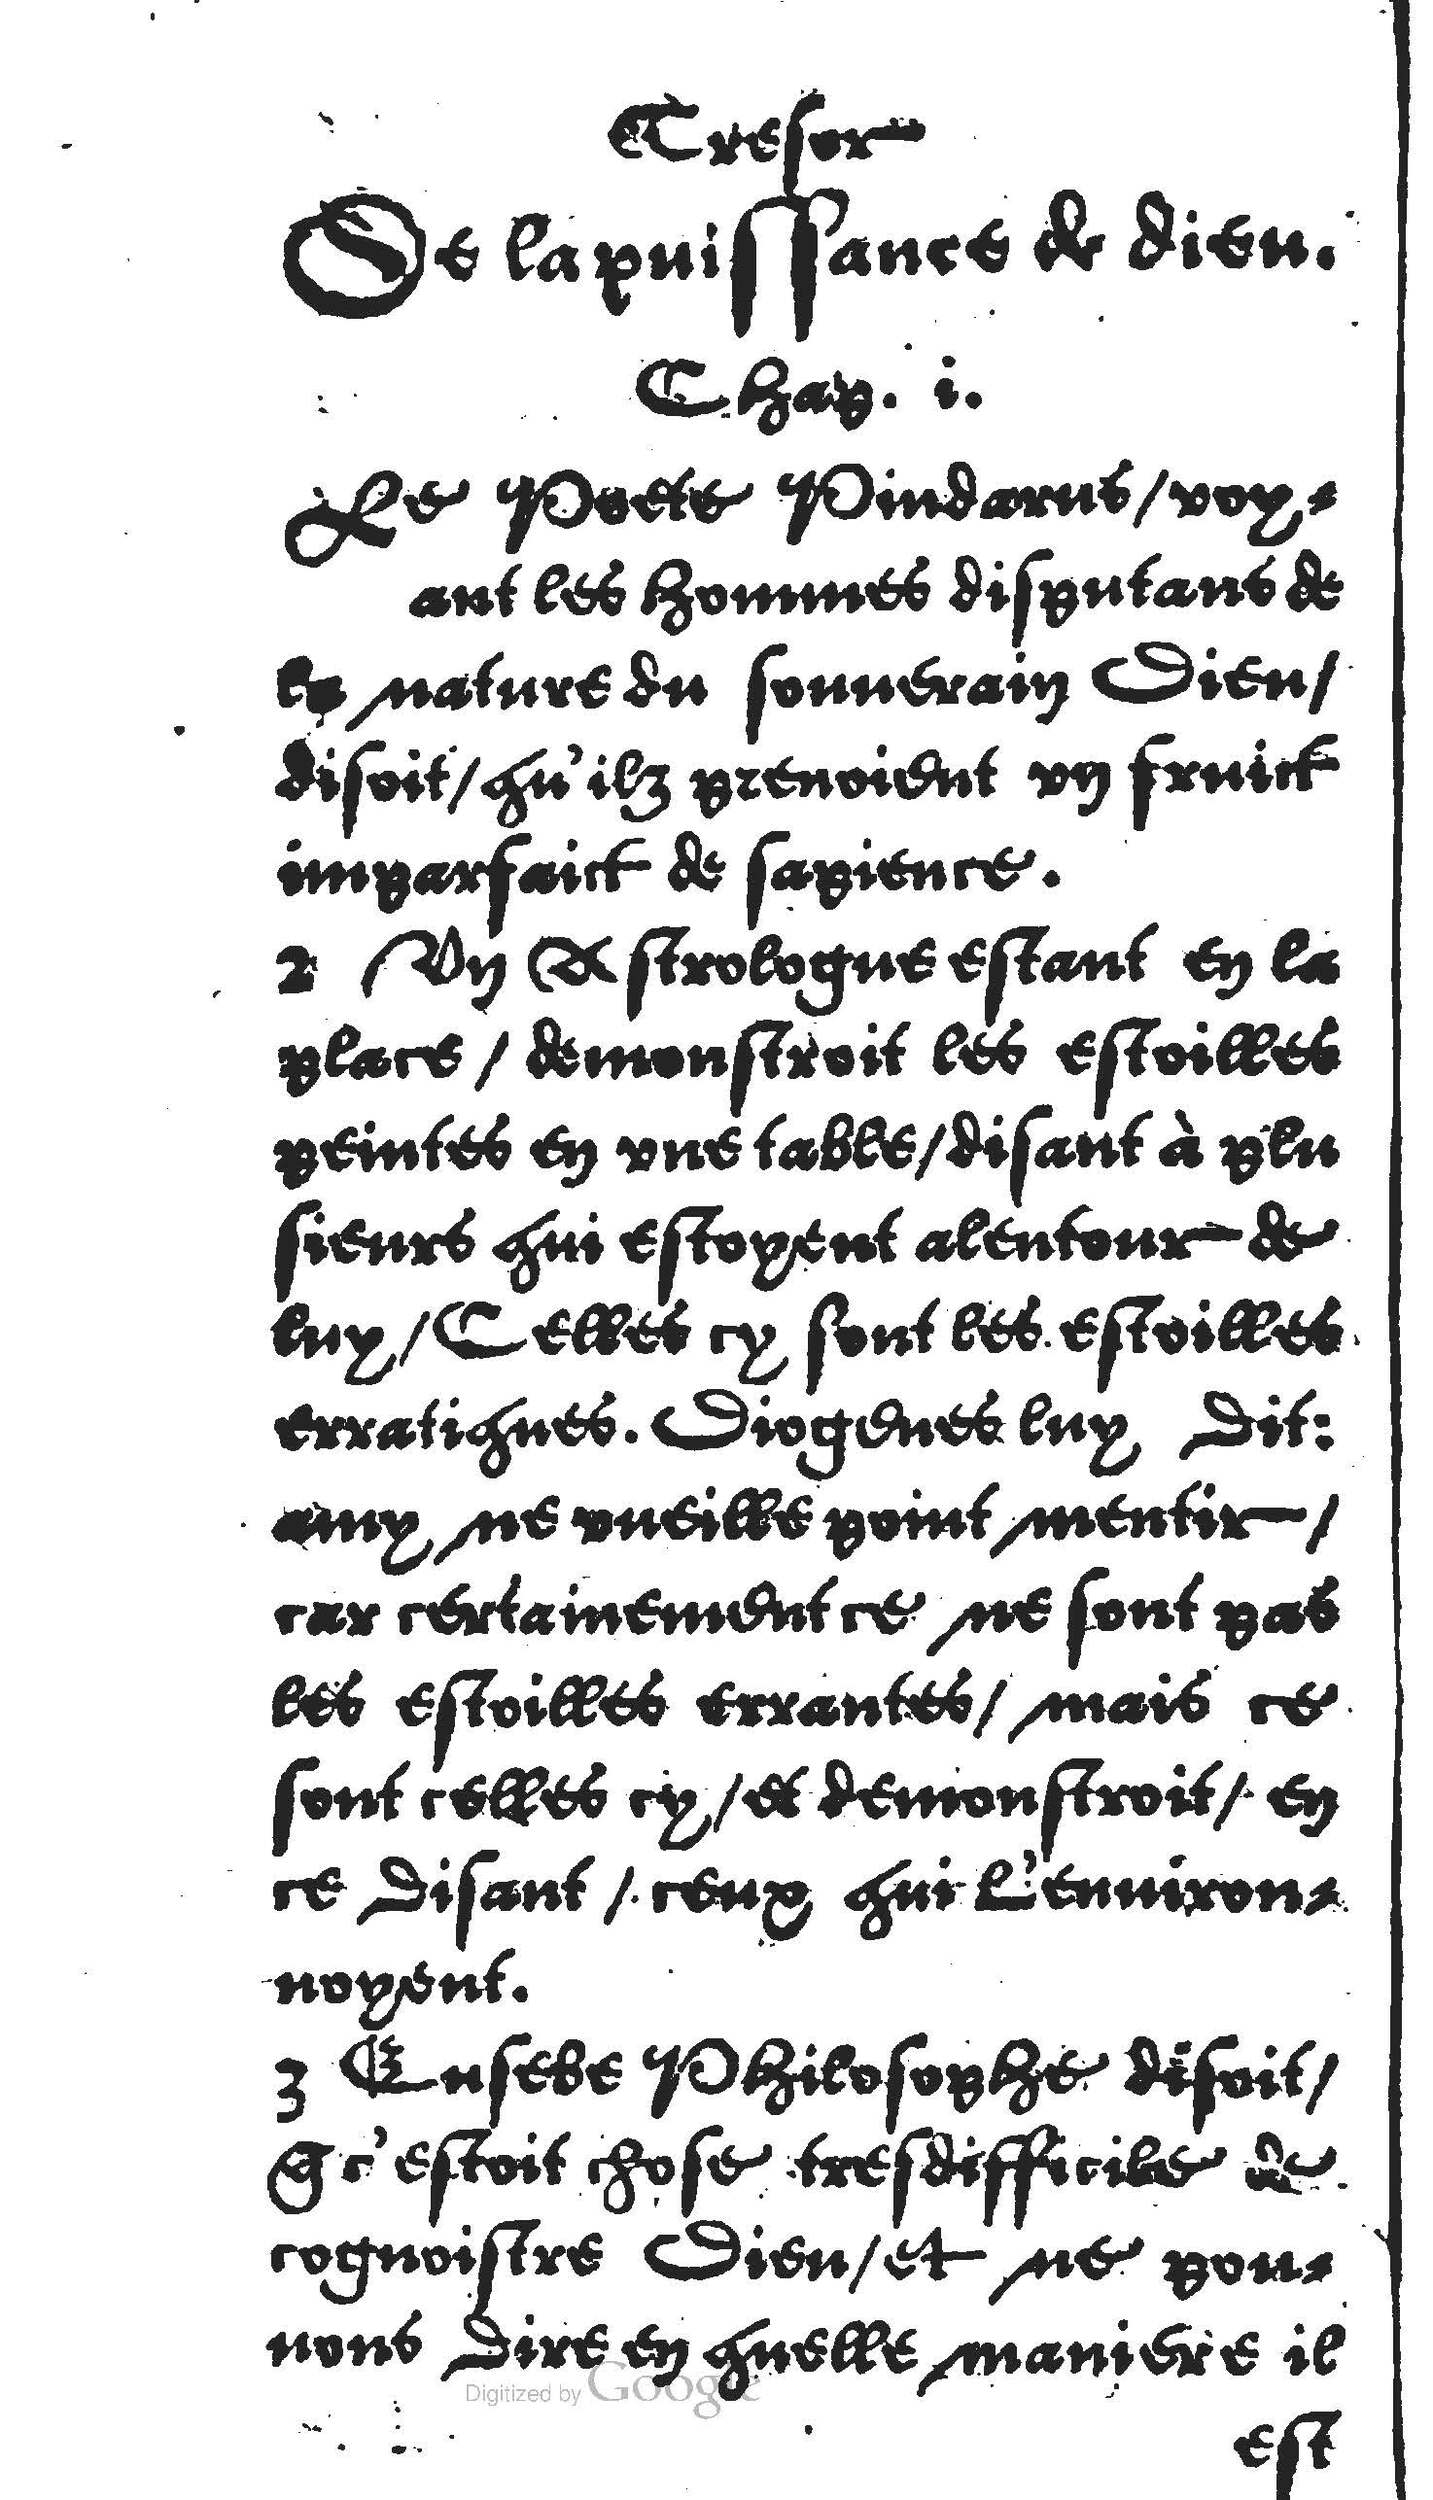 Tresor
De la puissance de dieu.
Chap. i.
Le Poete Pindarus/voy-
ant les hommes disputans de
la nature du souuerain Dieu/
disoit/qu'ilz prenoient vn fruict
imparfaict de sapience.
2 Vn Astrologue estant en la
place/demonstroit les estoilles
peintes en vne table/disant à plu
sieurs qui estoyent alentour de
luy/Celles cy sont les estoilles
erratiques. Diogenes luy dit:
amy ne vueille point mentir/
car certainement ce ne sont pas
les estoilles errantes/mais ce
sont celles cy/et demonstroit/en
ce disant/ceux qui l'enuiron-
noyent.
3 Eusebe Philosophe disoit/
q̃ c'estoit chose tresdifficile de
cognoistre Dieu/et ne pou-
uons dire en quelle maniere il
Digitized by Google
est